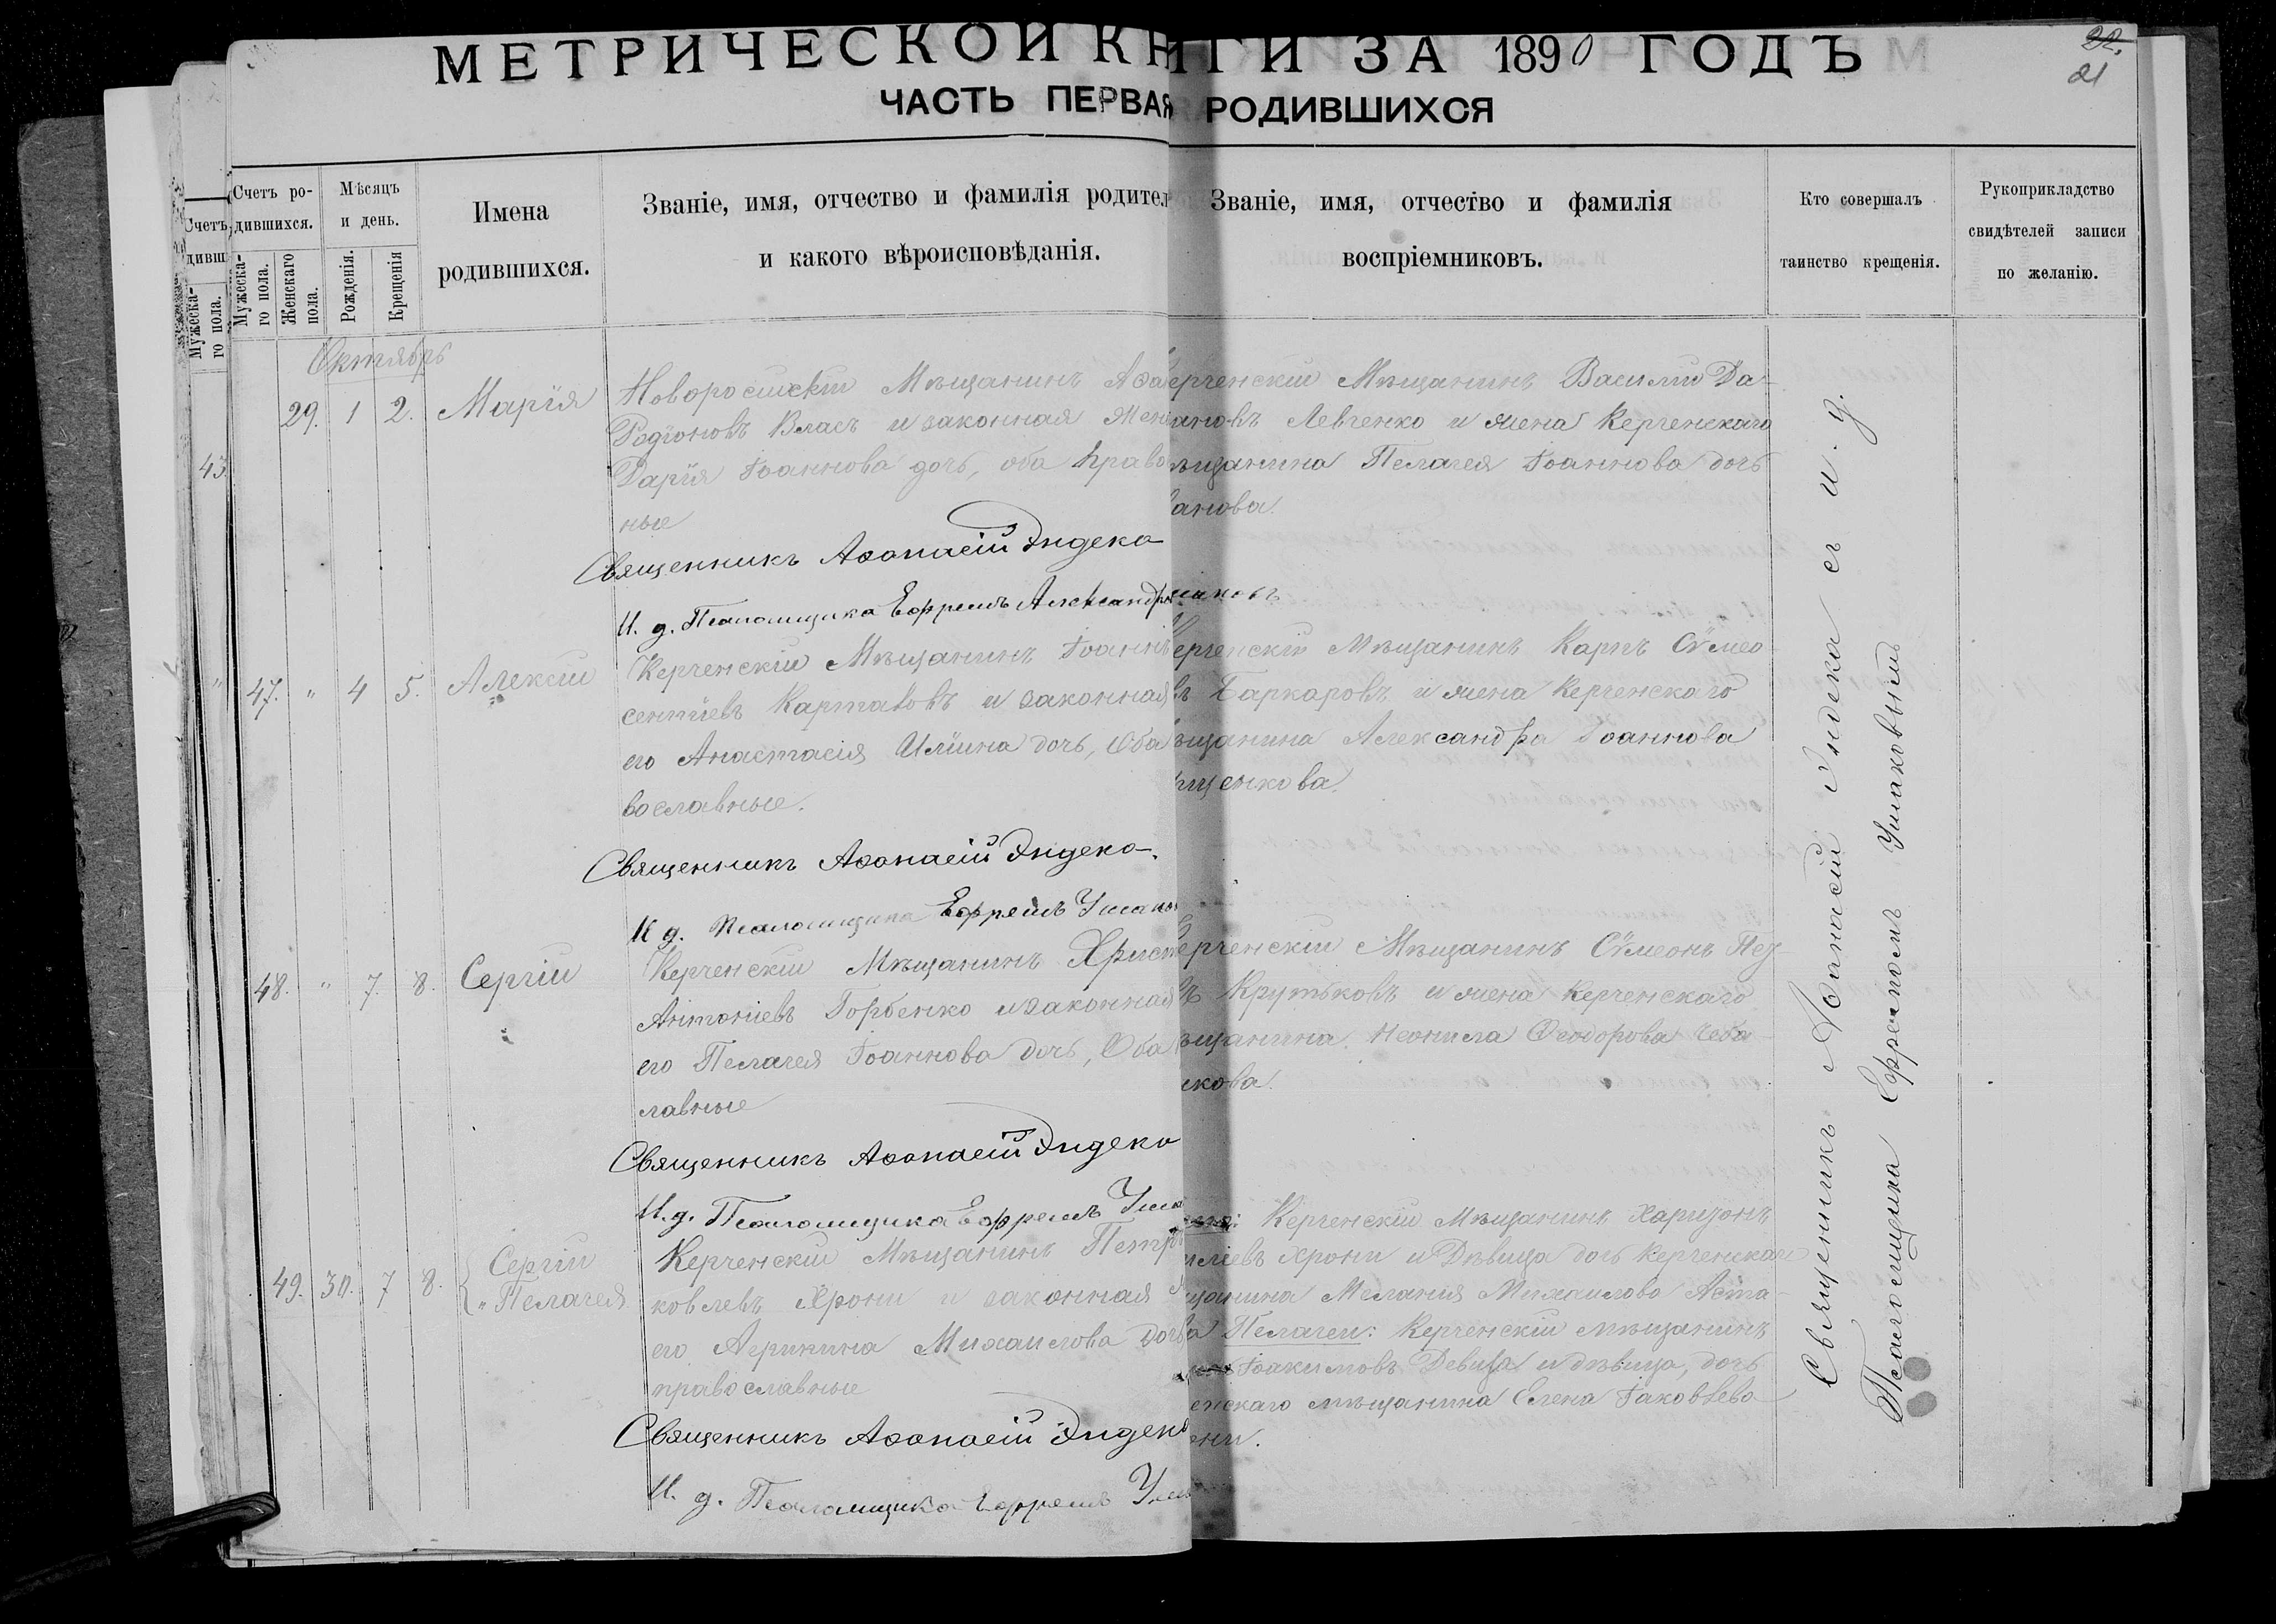 МЕТРИЧЕСКОЙ КНИГИ ЗА 1890 ГОДЪ
22.
21
ЧАСТЬ ПЕРВАЯ РОДИВШИХСЯ
Счетъ
дивш
Мужеска-
го пола.
43.
"
Счетъ ро-
дившихся.
Мужеска-
го пола.
Женскаго
пола.
Мѣсяцъ
и день.
Рожденія.
Крещенія
Имена
родившихся.
Званіе, имя, отчество и фамилія родител
и какого вѣроисповѣданія.
Званіе, имя, отчество и фамилія
воспріемниковъ.
Кто совершалъ
таинство крещенія.
Рукоприкладство
свидѣтелей записи
по желанію.
Октябрь
29. 1 2. Марія
Новоросійскій Мѣщанинъ Аѳа
Родіоновъ Власъ и законная жен
Дарія Іоаннова дочь, оба право
ные
Священникъ Аѳанасій Эндека
И. д. Псаломщика Ефремъ Александр
ерченскій Мѣщанинъ Василій Ра-
ановъ Левченко и жена Керченскаго
ѣщанина Пелагея Іоаннова дочь
анова.
47. " 4 5. Алексій
Керченскій Мѣщанинъ Іоаннъ
сентіевъ Картавовъ и законная
его Анастасія Иліина дочь, Оба
вославные.
Священникъ Аѳанасій Эндека.
И д. Псаломщика Ефремъ Ушаков
ерченскій Мѣщанинъ Карпъ Сѵмео-
въ Баркаровъ и жена Керченскаго
ѣщанина Александра Іоаннова
ищенкова.
48. " 7. 8. Сергій
Керченскій Мѣщанинъ Христ
Антоніевъ Горбенко и законная
его Пелагея Іоаннова дочь, Оба
лавные
Священникъ Аѳанасій Эндека
И. д. Псаломщика Ефремъ Уша
ерченскій Мѣщанинъ Сѵмеонъ Пет-
въ Крутьковъ и жена Керченскаго
ѣщанина Неонила Ѳеодорова Чеба-
кова.
49. 30. 7 8. Сергій
" Пелагея
Керченскій Мѣщанинъ Петръ
ковлевъ Хрони и законная
его Агрипина Михаилова дочь
православные
Священникъ Аѳанасій Эндека
И. д. Псаломщика Ефремъ Уша
Керченскій Мѣщанинъ Харитонъ
иліевъ Хрони и Дѣвица дочь Керченскаго
щанина Меланія Михаилова Аста-
ва Пелагеи: Керченскій мѣщанинъ
Іоакимовъ Девица и дѣвица, дочь
енскаго мѣщанина Елена Іаковлева
они.
Священникъ Аѳанасій Эндека съ и. д.
Псаломщика Ефремомъ Ушаковымъ